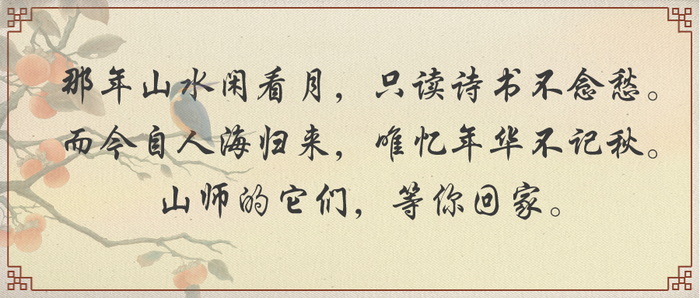 那年山水闲看月，只读诗书不念愁。
而今自人海归来，唯忆年华不记秋。
山师的它们，等你回家。